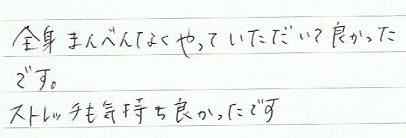 全身まんべんなくやっていただいて良かった
です。
ストレッチも気持ち良かったです